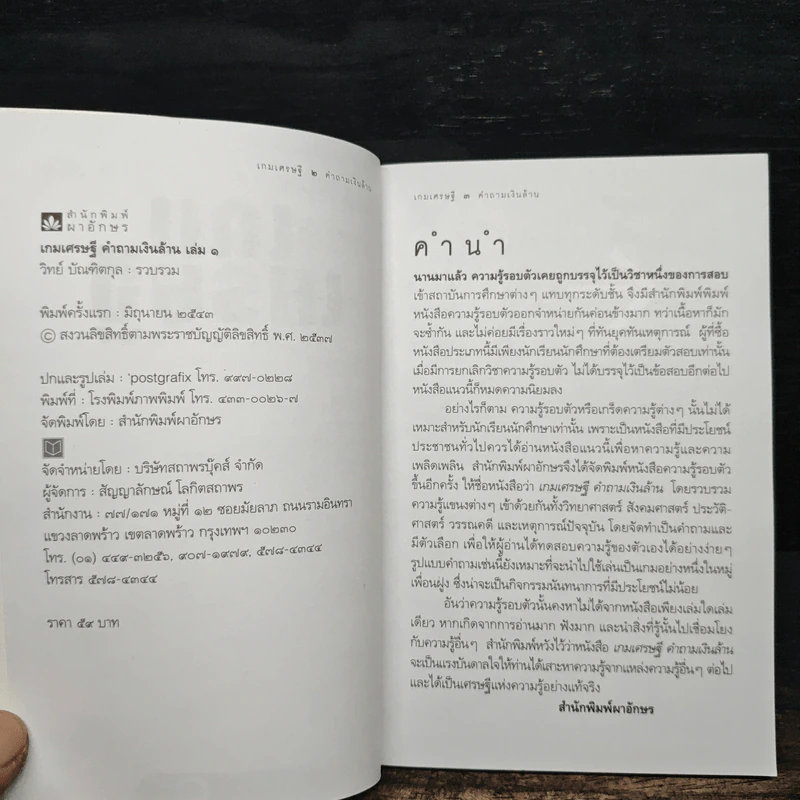 เกมเศรษฐี ๒ คำถามเงินล้าน
สำนักพิมพ์
ผาอักษร
เกมเศรษฐี คำถามเงินล้าน เล่ม ๑
วิทย์ บัณฑิตกุล : รวบรวม
พิมพ์ครั้งแรก : มิถุนายน ๒๕๔๓
© สงวนลิขสิทธิ์ตามพระราชบัญญัติลิขสิทธิ์ พ.ศ. ๒๕๓๗
ปกและรูปเล่ม : 'postgrafix โทร. ๙๙๗-๐๒๒๘
พิมพ์ที่ : โรงพิมพ์ภาพพิมพ์ โทร. ๔๓๓-๐๐๒๖-๗
จัดพิมพ์โดย : สำนักพิมพ์ผาอักษร
จัดจำหน่ายโดย : บริษัทสถาพรบุ๊คส์ จำกัด
ผู้จัดการ : สัญญาลักษณ์ โลกิตสถาพร
สำนักงาน : ๗๗/๑๗๑ หมู่ที่ ๑๒ ซอยมัยลาภ ถนนรามอินทรา
แขวงลาดพร้าว เขตลาดพร้าว กรุงเทพฯ ๑๐๒๓๐
โทร. (๐๑) ๔๔๙-๓๒๕๖, ๙๐๗-๑๙๗๙, ๕๗๘-๔๓๔๔
โทรสาร ๕๗๘-๔๓๔๔
ราคา ๕๙ บาท
เกมเศรษฐี ๓ คำถามเงินล้าน
คำนำ
นานมาแล้ว ความรู้รอบตัวเคยถูกบรรจุไว้เป็นวิชาหนึ่งของการสอบ
เข้าสถาบันการศึกษาต่างๆ แทบทุกระดับชั้น จึงมีสำนักพิมพ์พิมพ์
หนังสือความรู้รอบตัวออกจำหน่ายกันค่อนข้างมาก ทว่าเนื้อหาก็มัก
จะซ้ำกัน และไม่ค่อยมีเรื่องราวใหม่ๆ ที่ทันยุคทันเหตุการณ์ ผู้ที่ซื้อ
หนังสือประเภทนี้มีเพียงนักเรียนนักศึกษาที่ต้องเตรียมตัวสอบเท่านั้น
เมื่อมีการยกเลิกวิชาความรู้รอบตัว ไม่ได้บรรจุไว้เป็นข้อสอบอีกต่อไป
หนังสือแนวนี้ก็หมดความนิยมลง
อย่างไรก็ตาม ความรู้รอบตัวหรือเกร็ดความรู้ต่างๆ นั้นไม่ได้
เหมาะสำหรับนักเรียนนักศึกษาเท่านั้น เพราะเป็นหนังสือที่มีประโยชน์
ประชาชนทั่วไปควรได้อ่านหนังสือแนวนี้เพื่อหาความรู้และความ
เพลิดเพลิน สำนักพิมพ์ผาอักษรจึงได้จัดพิมพ์หนังสือความรู้รอบตัว
ขึ้นอีกครั้ง ให้ชื่อหนังสือว่า เกมเศรษฐี คำถามเงินล้าน โดยรวบรวม
ความรู้แขนงต่างๆ เข้าด้วยกันทั้งวิทยาศาสตร์ สังคมศาสตร์ ประวัติ-
ศาสตร์ วรรณคดี และเหตุการณ์ปัจจุบัน โดยจัดทำเป็นคำถามและ
มีตัวเลือก เพื่อให้ผู้อ่านได้ทดสอบความรู้ของตัวเองได้อย่างง่ายๆ
รูปแบบคำถามเช่นนี้ยังเหมาะที่จะนำไปใช้เล่นเป็นเกมอย่างหนึ่งในหมู่
เพื่อนฝูง ซึ่งน่าจะเป็นกิจกรรมนันทนาการที่มีประโยชน์ไม่น้อย
อันว่าความรู้รอบตัวนั้นคงหาไม่ได้จากหนังสือเพียงเล่มใดเล่ม
เดียว หากเกิดจากการอ่านมาก ฟังมาก และนำสิ่งที่รู้นั้นไปเชื่อมโยง
กับความรู้อื่นๆ สำนักพิมพ์หวังไว้ว่าหนังสือ เกมเศรษฐี คำถามเงินล้าน
จะเป็นแรงบันดาลใจให้ท่านได้เสาะหาความรู้จากแหล่งความรู้อื่นๆ ต่อไป
และได้เป็นเศรษฐีแห่งความรู้อย่างแท้จริง
สำนักพิมพ์ผาอักษร